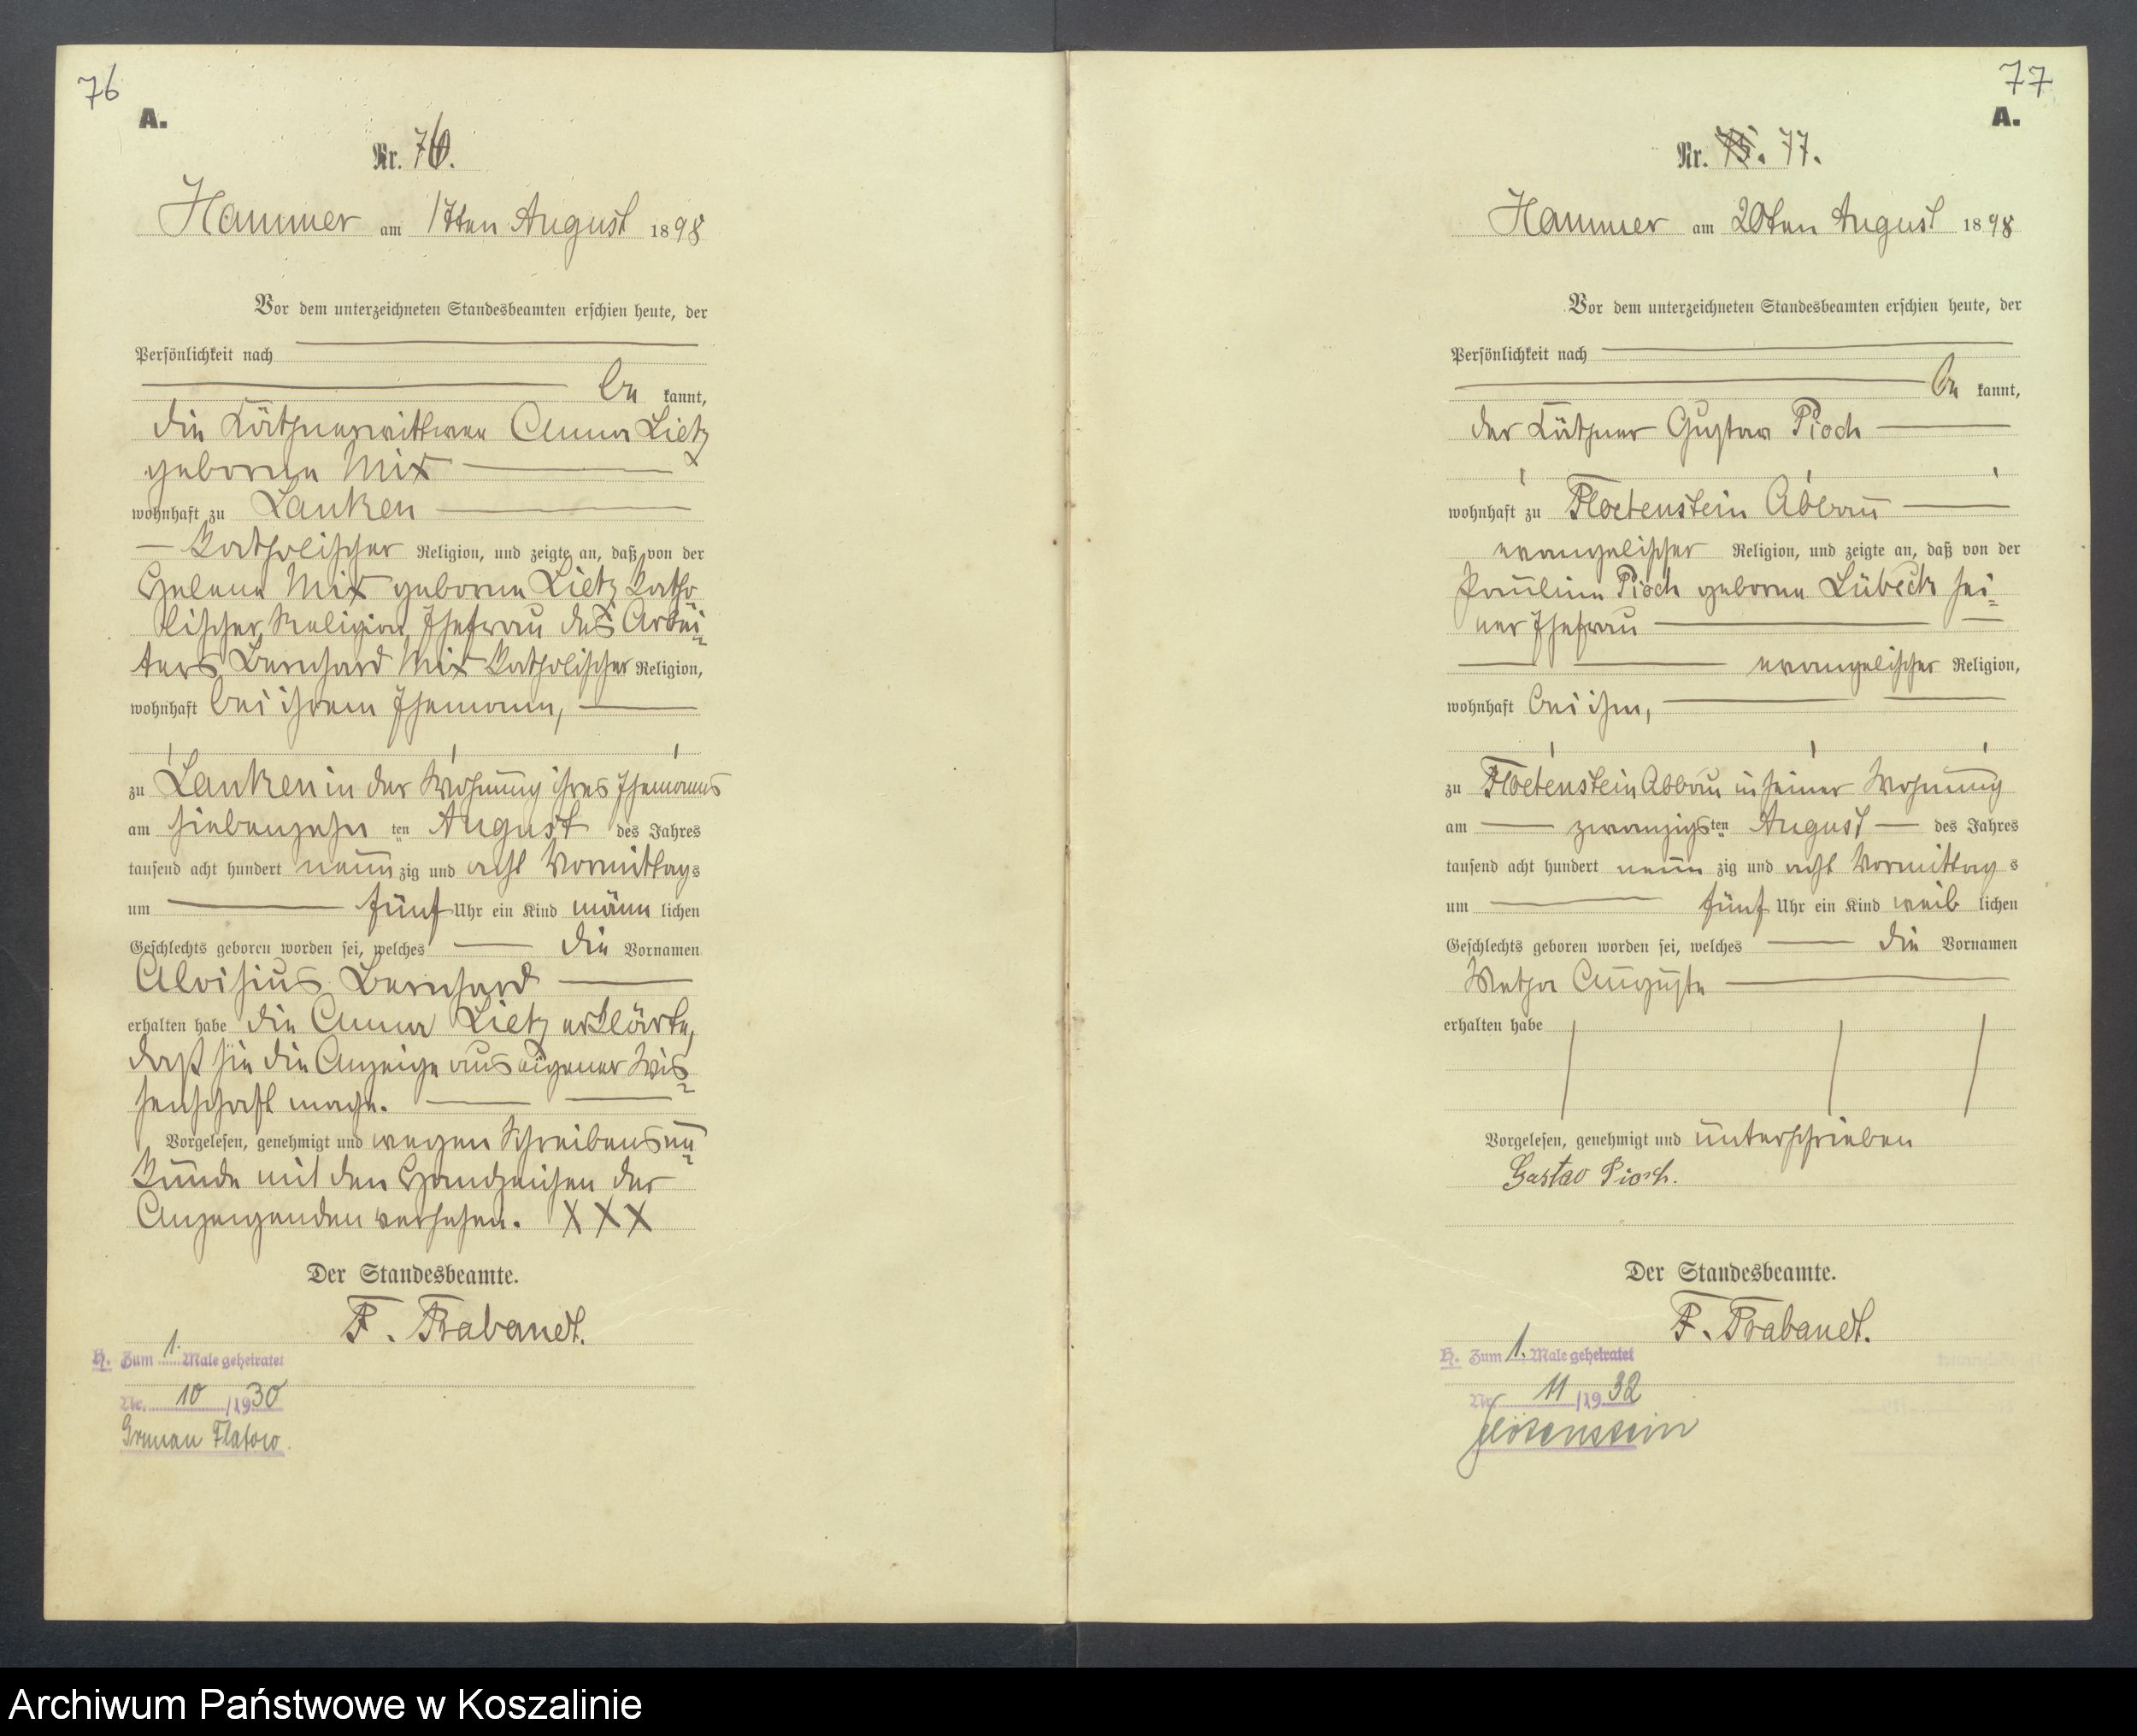 76
A.
Nr. 76.
Hammer am 17ten August 1898
Vor dem unterzeichneten Standesbeamten erschien heute, der
Persönlichkeit nach
be kannt,
die Käthnerwittwee Anna Lietz
geborne Mix
wohnhaft zu Lanken
katholischer Religion, und zeigte an, daß von der
Helene Mix geborne Lietz katho
lischer Religion, Ehefrau des Arbei=
ters Bernhard Mix katholischer Religion,
wohnhaft bei ihrem Ehemann,
zu Lanken in der Wohnung ihres Ehemanns
am siebenzehn ten August des Jahres
tausend acht hundert neun zig und acht Vormittags
um fünf Uhr ein Kind männ lichen
Geschlechts geboren worden sei, welches die Vornamen
Aloisius Bernhard
erhalten habe die Anna Lietz erklärte,
daß sie die Anzeige aus eigener Wis=
senschaft mache.
Vorgelesen, genehmigt und wegen Schreibensun=
kunde mit den Handzeichen der
Anzeigenden versehen. XXX
Der Standesbeamte.
F. Brabandt.
H. Zum 1. Male geheiratet
Nr. 10 /1930
Flatow
77
A.
Nr. 75. 77.
Hammer am 20ten August 1898
Vor dem unterzeichneten Standesbeamten erschien heute, der
Persönlichkeit nach
be kannt,
der Käthner Gustav Pioch
wohnhaft zu Floetenstein Abbau
evangelischer Religion, und zeigte an, daß von der
Pauline Pioch geborne Lübeck sei=
ner Ehefrau
evangelischer Religion,
wohnhaft bei ihm,
zu Floetenstein Abbau in seiner Wohnung
am zwanzigsten August des Jahres
tausend acht hundert neun zig und acht Vormittag s
um fünf Uhr ein Kind weib lichen
Geschlechts geboren worden sei, welches die Vornamen
Metha Auguste
erhalten habe
Vorgelesen, genehmigt und unterschrieben
Gustav Pioch.
Der Standesbeamte.
F. Brabandt.
H. Zum 1. Male geheiratet
Nr. 11 /1932
Flötenstein
Archiwum Państwowe w Koszalinie